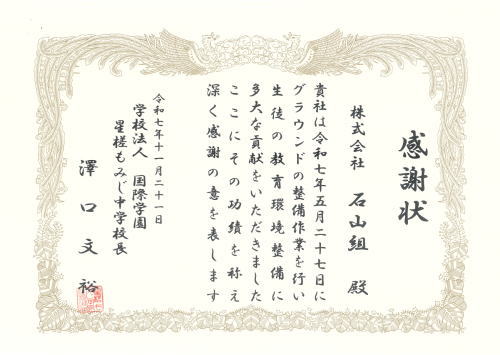 感謝状
株式会社 石山組 殿
貴社は令和七年五月二十七日に
グラウンドの整備作業を行い
生徒の教育環境整備に
多大な貢献をいただきました
ここにその功績を称え
深く感謝の意を表します
令和七年十一月二十一日
学校法人 国際学園
星槎もみじ中学校長
澤口文裕